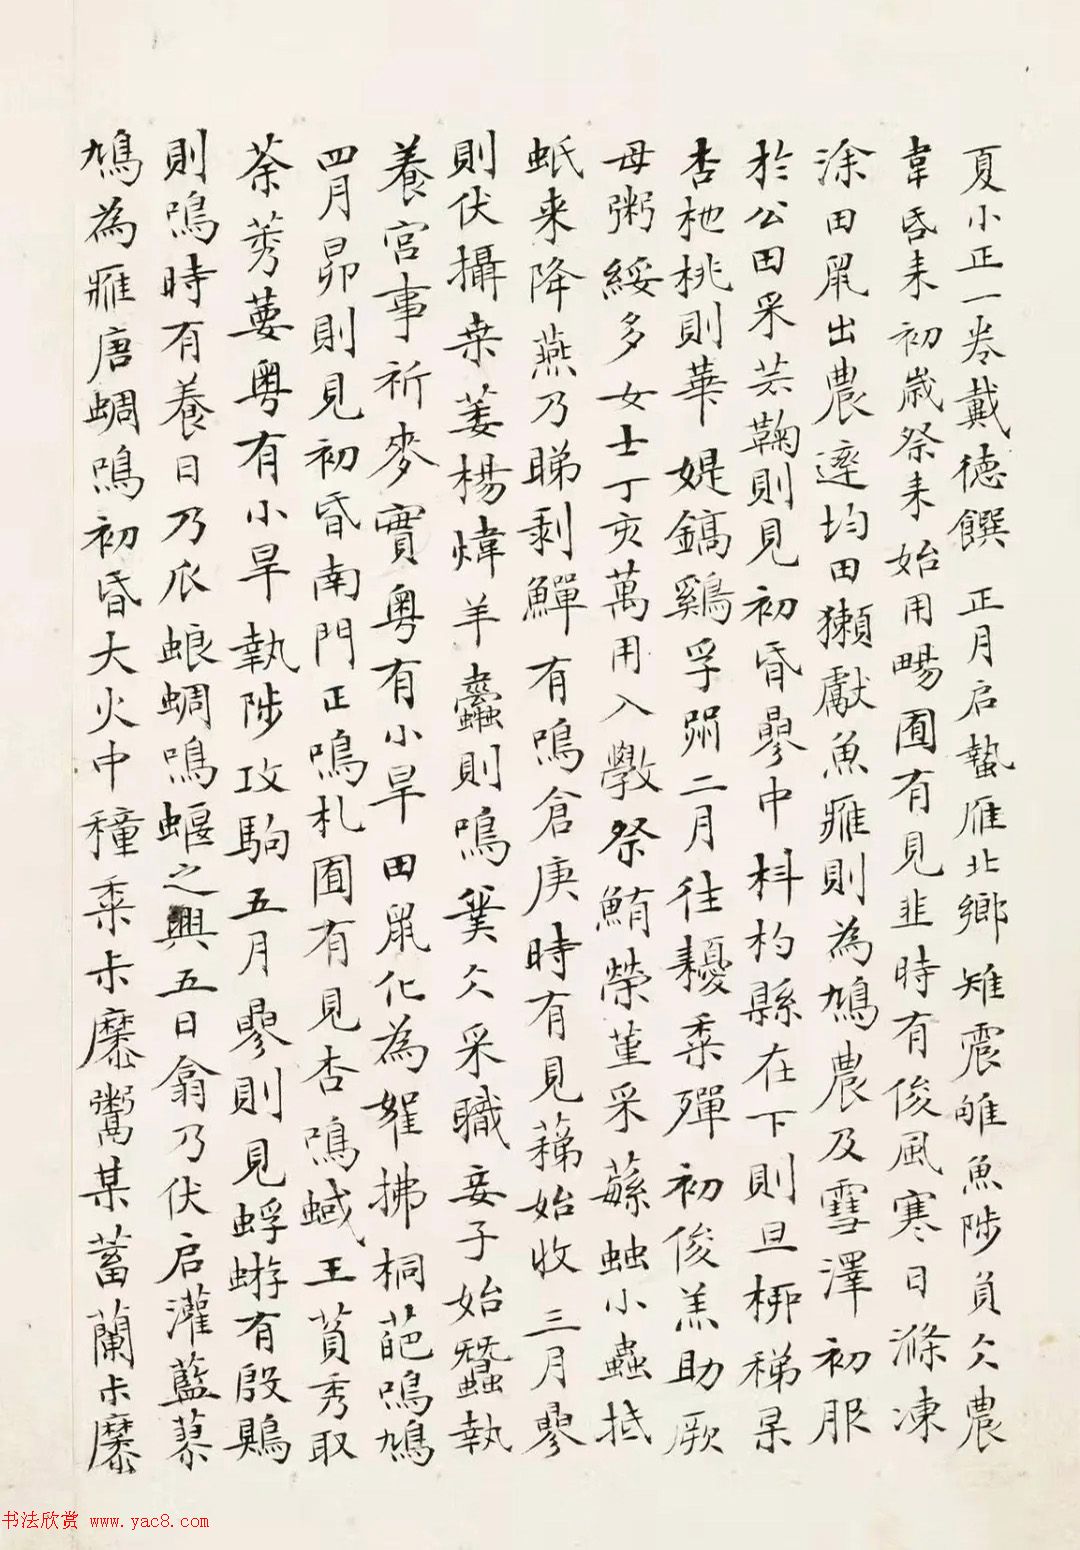 夏小正一卷戴德饌 正月启蟄雁北鄉雉震雊魚陟負仌農
韋昏耒初歲祭耒始用畼囿有見韭時有俊風寒日滌凍
涂田鼠出農達均田獺獻魚雁則為鳩農及雪澤初服
於公田采芸鞠則見初昏曑中枓杓縣在下則旦桺稊杲
杏杝桃則華媞鎬鷄孚粥二月往耰黍殫初俊羔助厥
母粥綏多女士丁亥萬用入斆祭鮪榮堇采蘇䖵小蟲抵
蚔来降燕乃睇剥鱓有鳴倉庚時有見稊始收三月曑
則伏攝桒萎楊煒羊䗥則鳴頒仌采職妾子始蠶執
養宮事祈麥實粤有小旱田鼠化為鴽拂桐葩鳴鳩
四月昴則見初昏南門正鳴札囿有見杏鳴蜮王萯秀取
荼莠葽粤有小旱執陟攻駒五月曑則見蜉蝣有殷鶪
則鳴時有養日乃𤓰蜋蜩鳴蝘之興五日翕乃伏启灌藍蓼
鳩為雁唐蜩鳴初昏大火中穜黍尗麋鬻某蓄蘭尗麋
书法欣赏 www.yac8.com